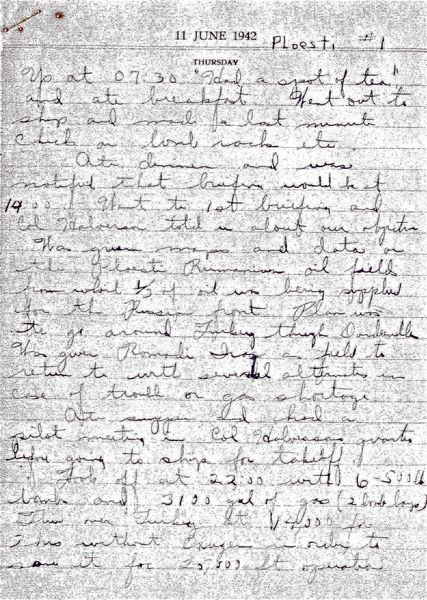 11 JUNE 1942 Ploesti #1
THURSDAY
Up at 07:30 "Had a spot of tea"
and ate breakfast. Went out to
ship and made a last minute
check on bomb racks etc.
Ate dinner and was
notified that briefing would be at
1400. Went to 1st briefing and
Col Halverson told us about our
Was given maps and data on
the Ploesti Rumanian oil field
from which 1/3 of oil was being supplied
for the Russian front Plan was
to go around Turkey though
Was given Iraq as field to
return to with several alternates in
case of trouble or gas shortage
Ate supper and had a
pilot meeting in Col quarters
before going to ships for takeoff
Took off at 22:00 with 6-500 lb
bombs and 3100 gal of gas (2 bomb bays)
over Turkey at 14,000 for
this without Oxygen in order to
save it for ft operation